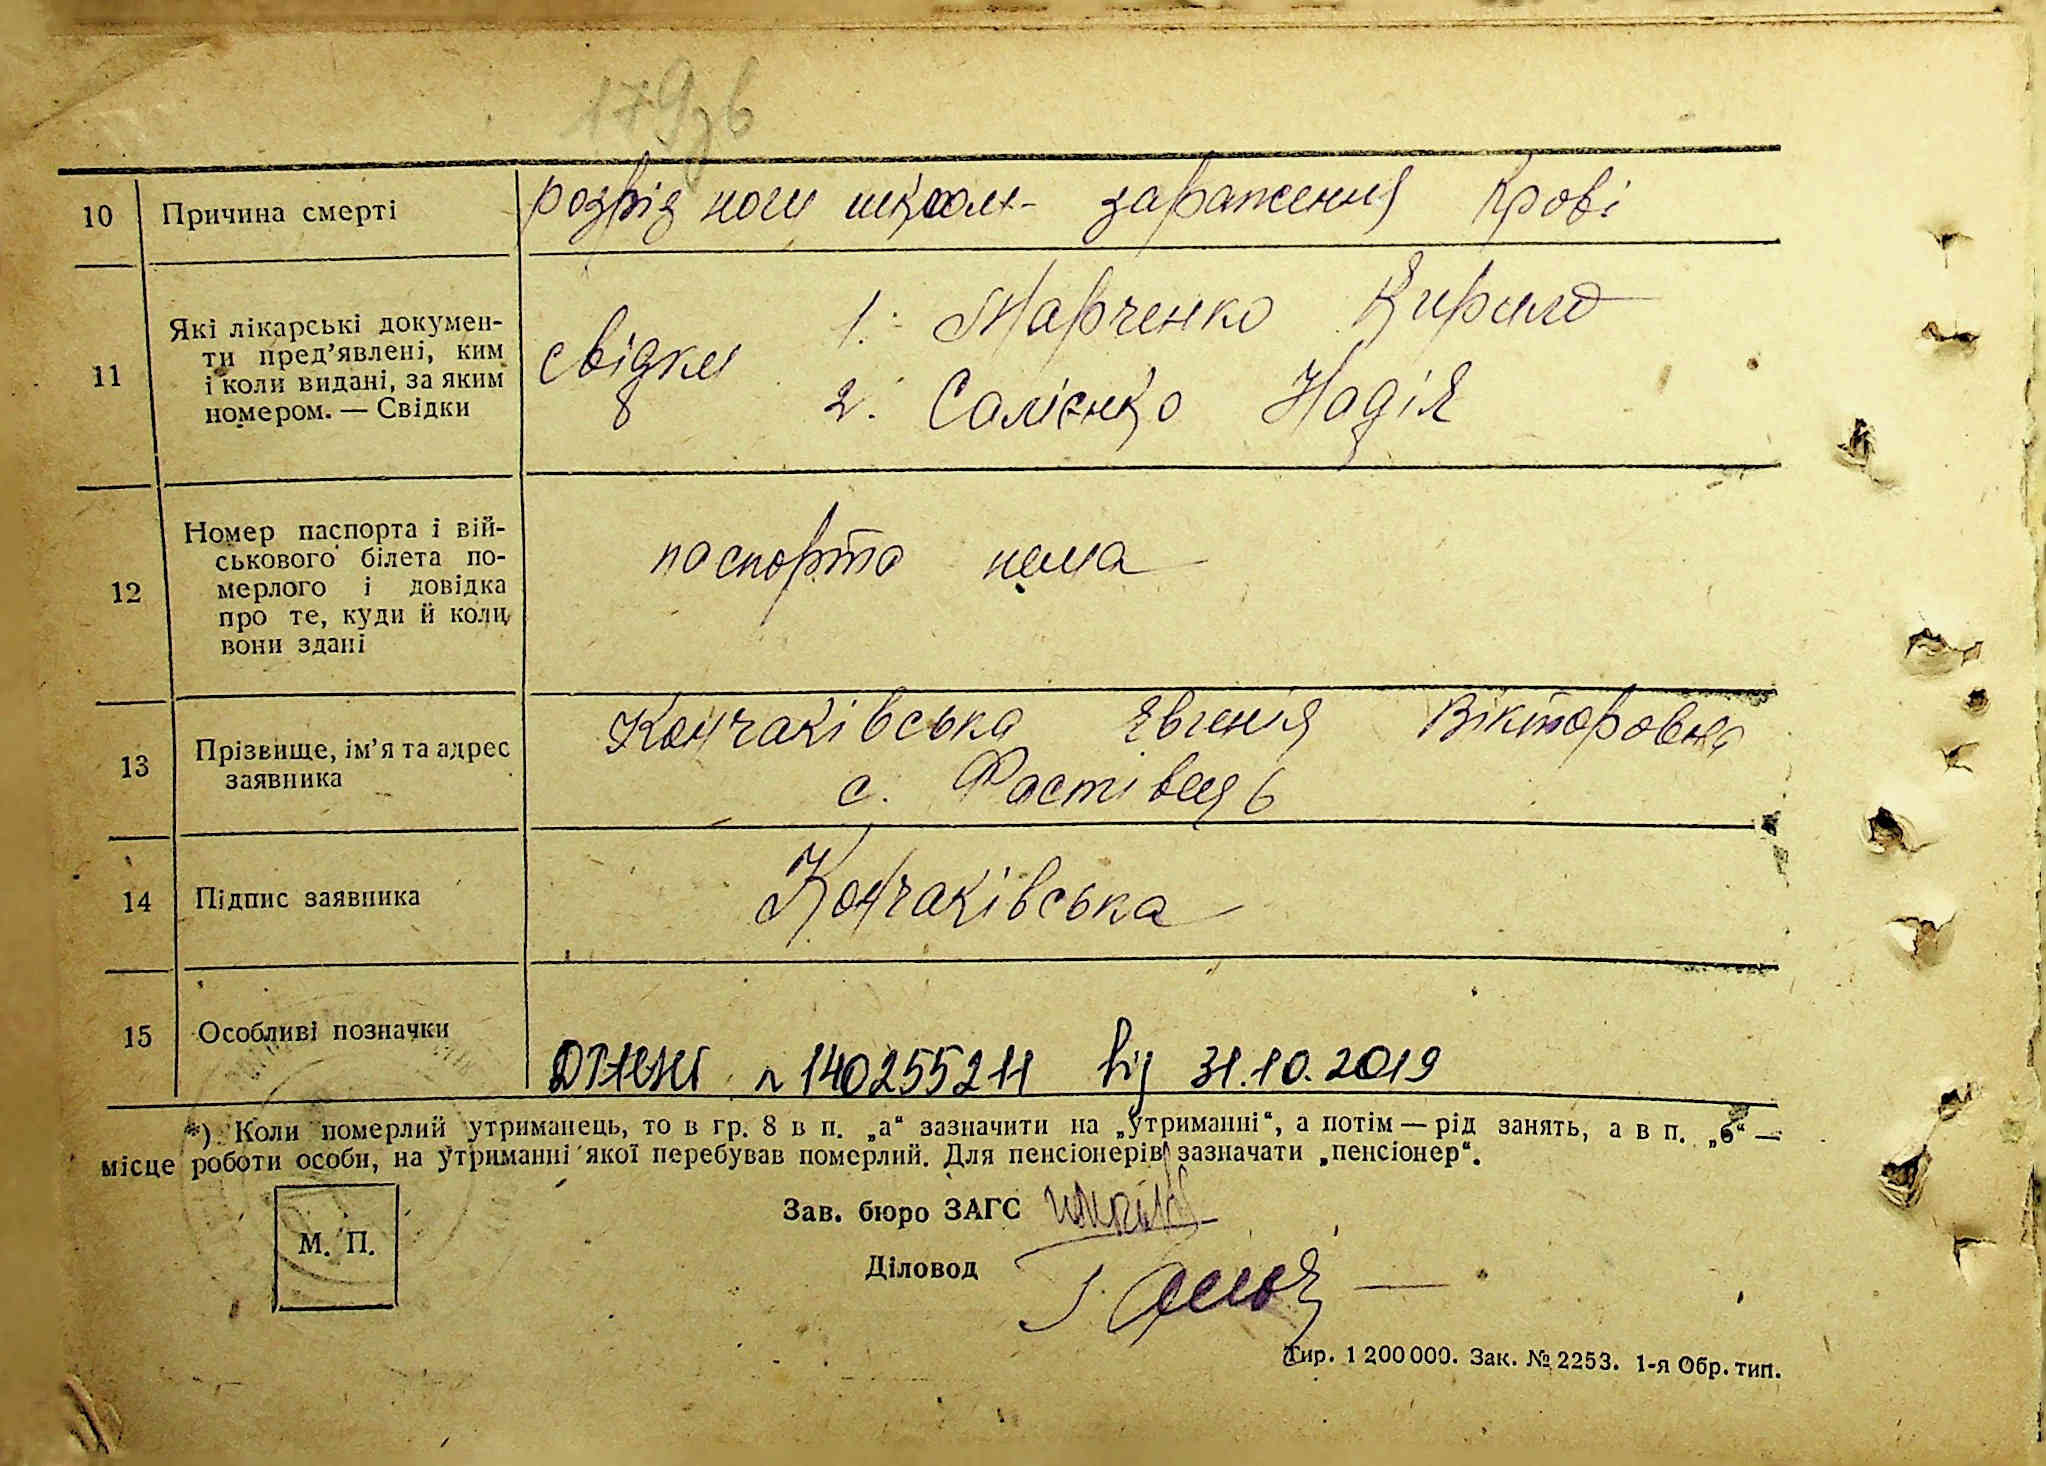 179зв
10 Причина смерті розріз ноги шклом- зараження крові
11 Які лікарські докумен-
ти пред’явлені, ким
і коли видані, за яким
номером. — Свідки
свідки 1. Марченко Кирило
2. Салієнко Надія
12 Номер паспорта і вій-
ськового білета по-
мерлого і довідка
про те, куди й коли
вони здані
паспорта нема
13 Прізвище, ім’я та адрес
заявника
Кончаківська Євгенія Вікторовна
с. Фастівець
14 Підпис заявника Кончаківська
15 Особливі позначки № 14025521 від 31.10.2019
*) Коли померлий утриманець, то в гр. 8 в п. „а“ зазначити на „утриманні“, а потім — рід занять, а в п. „б“ —
місце роботи особи, на утриманні якої перебував померлий. Для пенсіонерів зазначати „пенсіонер“.
Зав. бюро ЗАГС
М. П.
Діловод
Тир. 1 200 000. Зак. № 2253. 1-я Обр. тип.